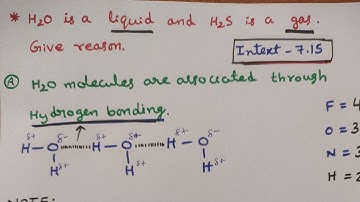 * H₂O is a liquid and H₂S is a gas.
Give reason.
Intext - 7.15
Ⓐ H₂O molecules are associated through
Hydrogen bonding.
δ+ δ- δ+ δ- δ+ δ-
H-O H-O H-O
H δ+ H δ+ H δ+
F = 4
O = 3
N = 3
H = 2
NOTE: